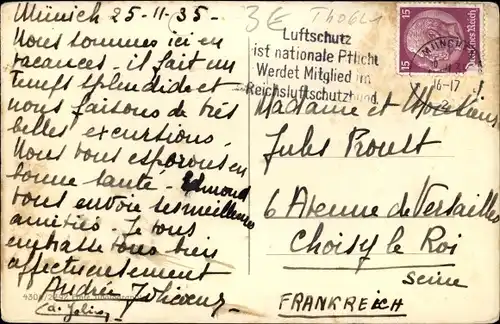 Münich 25-11-35-
Nous sommes ici en
vacances - il fait un
temps splendide et
nous faisons de très
belles excursions.
Nous vous espérons en
bonne santé - Edmond
vous envoie ses meilleures
amitiés. Je vous
embrasse tous bien
affectueusement
Andrée
3€
Luftschutz
ist nationale Pflicht
Werdet Mitglied im
Reichsluftschutzbund
15 15
Deutsches Reich
MÜNCHEN
16-17
Madame et Monsieur
Jules Proust
6 Avenue de Versailles
Choisy le Roi
Seine
FRANKREICH